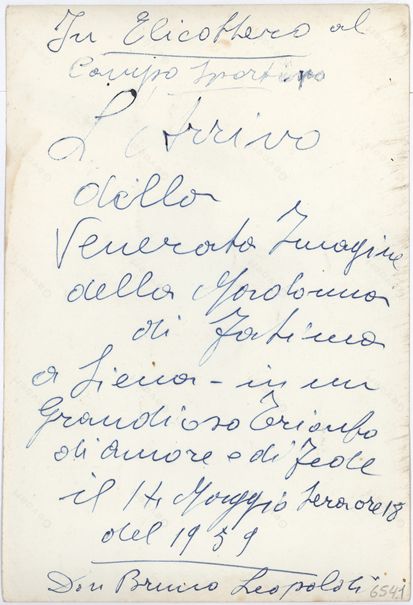 In Elicottero al
Campo Sportivo
L'Arrivo
della
Venerata Imagine
della Madonna
di Fatima
a Siena - in un
Grandioso Trionfo
di Amore e di Fede
il 14 Maggio sera ore 18
del 1959
Don Bruno Leopoldi
6541